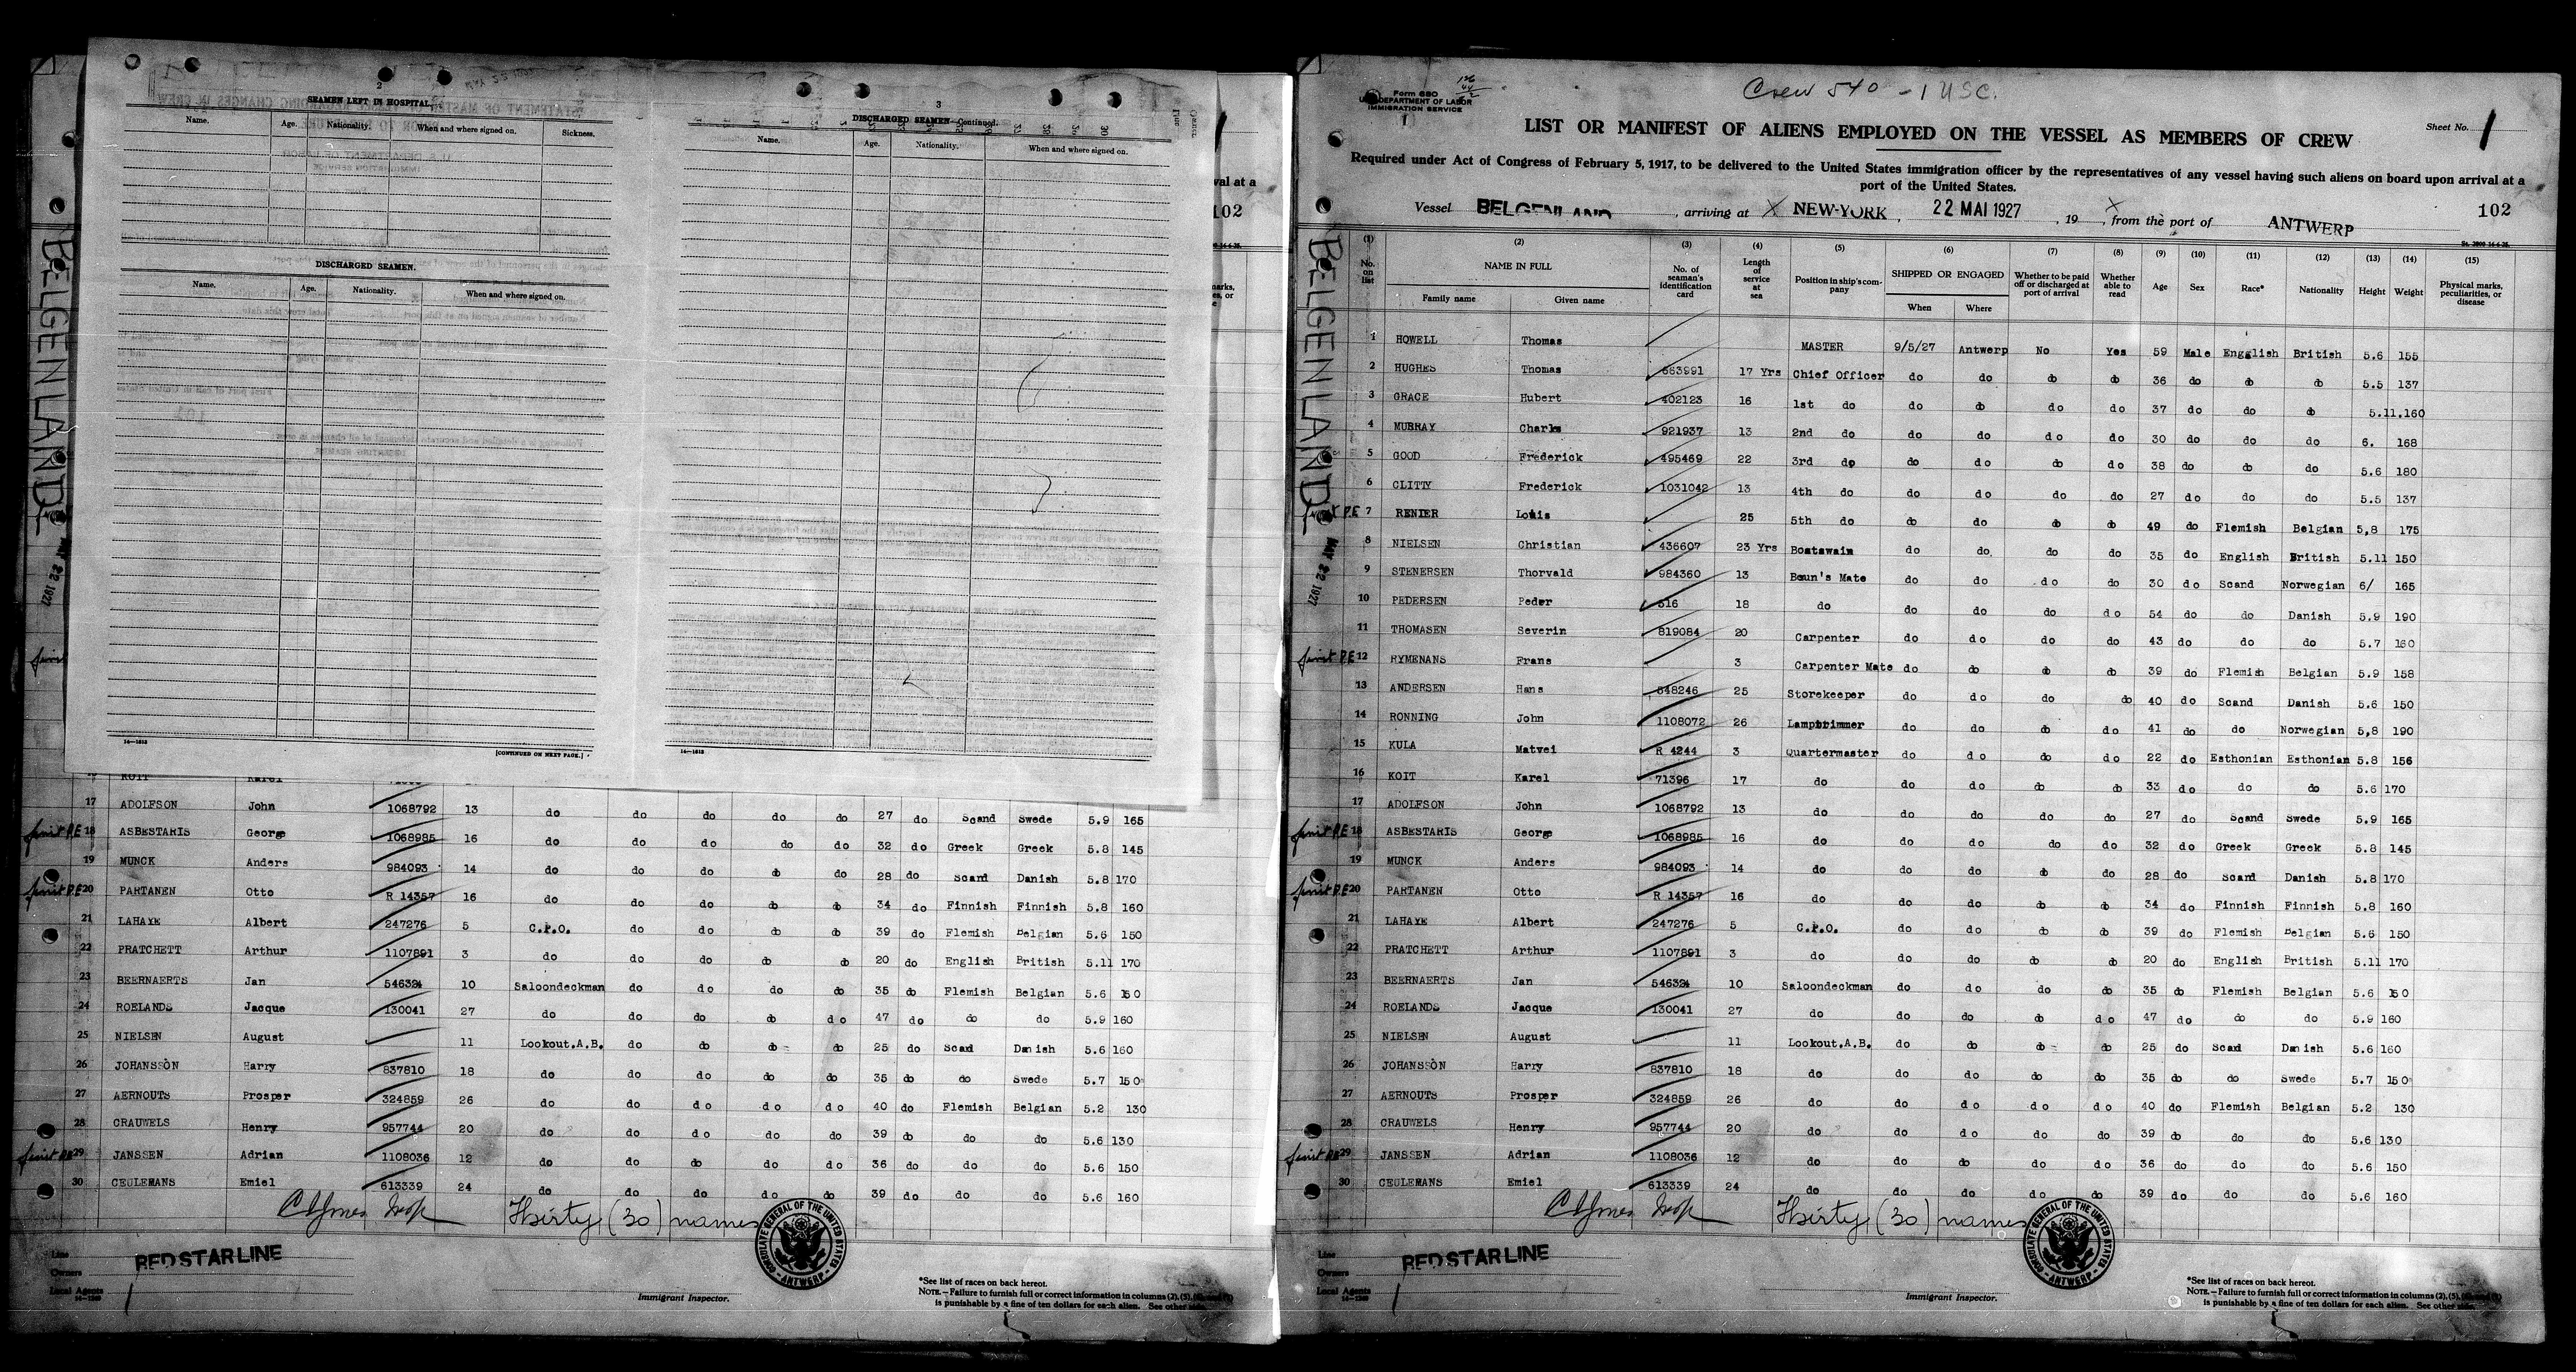 2
SEAMEN LEFT IN HOSPITAL.
Name. Age. Nationality. When and where signed on. Sickness.
DISCHARGED SEAMEN.
Name. Age. Nationality. When and where signed on.
16—1618 [CONTINUED ON NEXT PAGE.]
3
DISCHARGED SEAMEN—Continued.
Name. Age. Nationality. When and where signed on.
16—1618
val at a
102
BELGENLAND
MAY 22 1927
17 ADOLFSON John 1068792 13 do do do do do 27 do Scand Swede 5.9 165
18 ASBESTARIS George 1068985 16 do do do do do 32 do Greek Greek 5.8 145
19 MUNCK Anders 984093 14 do do do do do 28 do Scand Danish 5.8 170
20 PARTANEN Otto R 14357 16 do do do do do 34 do Finnish Finnish 5.8 160
21 LAHAYE Albert 247276 5 C.P.O. do do do do 39 do Flemish Belgian 5.6 150
22 PRATCHETT Arthur 1107891 3 do do do do do 20 do English British 5.11 170
23 BEERNAERTS Jan 546324 10 Saloondeckman do do do do 35 do Flemish Belgian 5.6 150
24 ROELANDS Jacque 130041 27 do do do do do 47 do do do 5.9 160
25 NIELSEN August 11 Lookout.A.B. do do do do 25 do Scad Danish 5.6 160
26 JOHANSSON Harry 837810 18 do do do do do 35 do do Swede 5.7 150
27 AERNOUTS Prosper 324859 26 do do do do do 40 do Flemish Belgian 5.2 130
28 CRAUWELS Henry 957744 20 do do do do do 39 do do do 5.6 130
29 JANSSEN Adrian 1108036 12 do do do do do 36 do do do 5.6 150
30 CEULEMANS Emiel 613339 24 do do do do do 39 do do do 5.6 160
Thirty (30) names
CONSULATE GENERAL OF THE UNITED STATES ANTWERP
Line RED STAR LINE
Owners
Local Agents
Immigrant Inspector.
*See list of races on back hereof.
NOTE.—Failure to furnish full or correct information in columns (2), (5),
is punishable by a fine of ten dollars for each alien. See other side.
Crew 540 - 1 USC.
Form 680
U.S. DEPARTMENT OF LABOR
IMMIGRATION SERVICE
LIST OR MANIFEST OF ALIENS EMPLOYED ON THE VESSEL AS MEMBERS OF CREW
Sheet No. 1
Required under Act of Congress of February 5, 1917, to be delivered to the United States immigration officer by the representatives of any vessel having such aliens on board upon arrival at a
port of the United States.
Vessel BELGENLAND, arriving at X NEW-YORK, 22 MAI 1927, 19 X from the port of ANTWERP 102
(1) (2) (3) (4) (5) (6) (7) (8) (9) (10) (11) (12) (13) (14) (15)
No. on list NAME IN FULL Family name Given name No. of seaman's identification card Length of service at sea Position in ship's company SHIPPED OR ENGAGED When Where Whether to be paid off or discharged at port of arrival Whether able to read Age Sex Race* Nationality Height Weight Physical marks, peculiarities, or disease
BELGENLAND
MAY 22 1927
1 HOWELL Thomas MASTER 9/5/27 Antwerp No Yes 59 Male Engglish British 5.6 155
2 HUGHES Thomas 663991 17 Yrs Chief Officer do do do do 36 do do do 5.5 137
3 GRACE Hubert 402123 16 1st do do do do do 37 do do do 5.11.160
4 MUBRAY Charls 921937 13 2nd do do do do do 30 do do do 6. 168
5 GOOD Frederick 495469 22 3rd do do do do do 38 do do do 5.6 180
6 CLITTY Frederick 1031042 13 4th do do do do do 27 do do do 5.5 137
7 RENIER Louis 25 5th do do do do do 49 do Flemish Belgian 5,8 175
8 NIELSEN Christian 436607 23 Yrs Boatswain do do do do 35 do English British 5.11 150
9 STENERSEN Thorvald 984360 13 Boun's Mate do do do do 30 do Scand Norwegian 6/ 165
10 PEDERSEN Peder 516 18 do do do do do 54 do do Danish 5.9 190
11 THOMASEN Severin 819084 20 Carpenter do do do do 43 do do do 5.7 160
12 RYMENANS Frans 3 Carpenter Mate do do do do 39 do Flemish Belgian 5.9 158
13 ANDERSEN Hans 548246 25 Storekeeper do do do do 40 do Scand Danish 5.6 150
14 RONNING John 1108072 26 Lamptrimmer do do do do 41 do do Norwegian 5,8 190
15 KULA Matvei R 4244 3 Quartermaster do do do do 22 do Esthonian Esthonian 5.8 156
16 KOIT Karel 71396 17 do do do do do 33 do do do 5.6 170
17 ADOLFSON John 1068792 13 do do do do do 27 do Scand Swede 5.9 165
18 ASBESTARIS George 1068985 16 do do do do do 32 do Greek Greek 5.8 145
19 MUNCK Anders 984093 14 do do do do do 28 do Scand Danish 5.8 170
20 PARTANEN Otto R 14357 16 do do do do do 34 do Finnish Finnish 5.8 160
21 LAHAYE Albert 247276 5 C.P.O. do do do do 39 do Flemish Belgian 5.6 150
22 PRATCHETT Arthur 1107891 3 do do do do do 20 do English British 5.11 170
23 BEERNAERTS Jan 546324 10 Saloondeckman do do do do 35 do Flemish Belgian 5.6 150
24 ROELANDS Jacque 130041 27 do do do do do 47 do do do 5.9 160
25 NIELSEN August 11 Lookout.A.B. do do do do 25 do Scad Danish 5.6 160
26 JOHANSSON Harry 837810 18 do do do do do 35 do do Swede 5.7 150
27 AERNOUTS Prosper 324859 26 do do do do do 40 do Flemish Belgian 5.2 130
28 CRAUWELS Henry 957744 20 do do do do do 39 do do do 5.6 130
29 JANSSEN Adrian 1108036 12 do do do do do 36 do do do 5.6 150
30 CEULEMANS Emiel 613339 24 do do do do do 39 do do do 5.6 160
Thirty (30) names
CONSULATE GENERAL OF THE UNITED STATES ANTWERP
Line RED STAR LINE
Owners
Local Agents
Immigrant Inspector.
*See list of races on back hereof.
NOTE.—Failure to furnish full or correct information in columns (2), (5),
is punishable by a fine of ten dollars for each alien. See other side.